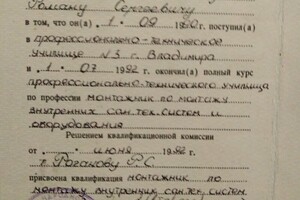 Роману Сергеевичу
в том, что он(а) 1 · 09 1990г. поступил(а)
в профессионально-техническое
училище №3 г. Владимира
и „1“ 07 1992 г. окончил(а) полный курс
профессионально-технического училища
по профессии монтажник по монтажу
внутренних сан.тех.систем и
оборудования
Решением квалификационной комиссии
от июня 1992 г.
т. Рогакову Р.С.
присвоена квалификация монтажник по
монтажу внутренних сан.тех.систем